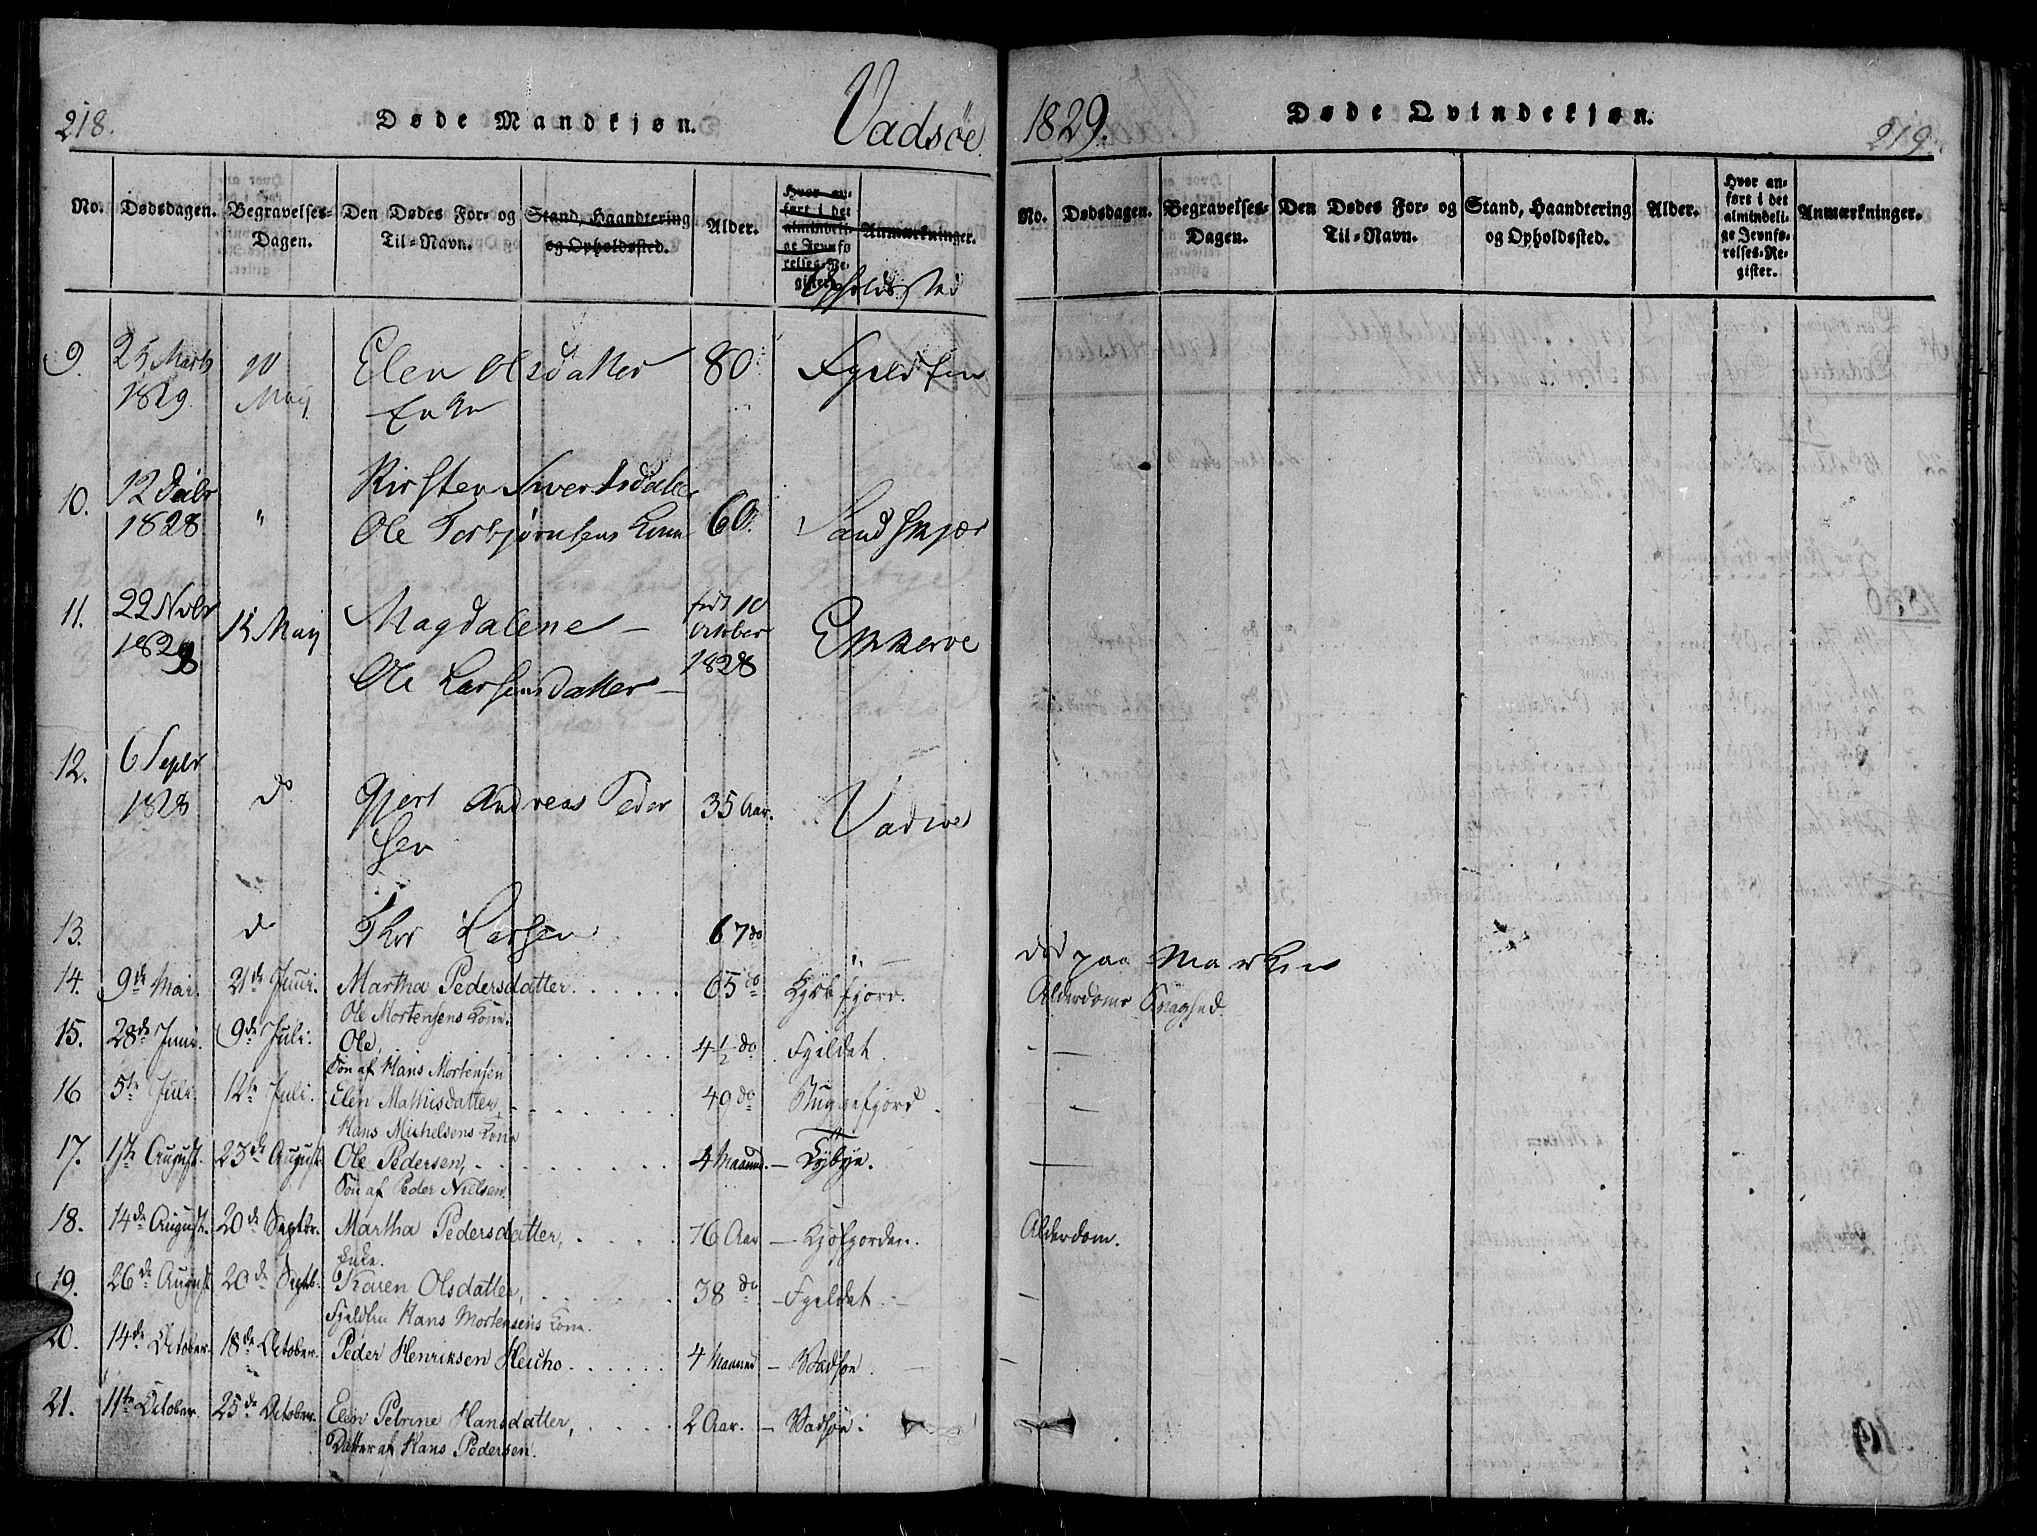 218. Døde Mandkjøn. Vadsöe
No. Dødsdagen. Begravelses-Dagen. Den Dødes For- og Til-Navn. Stand, Haandtering og Opholdssted. Alder. Hvor anført i det almindelige Jevnførelses-Register. Anmærkninger.
Opholdssted
9. 25 Marts 10 Elen Olsdatter 80 Fjeldfin
1829. May Enke
10. 12 Decbr Kirsten Sivertsdatter
1828 " Ole Torbjørnsens Kone 60. Sandskjær
11. 22 Novbr 15 May Magdalene – født 10 October 1828 Ekkerøe
1828
Ole Larsensdatter –
12. 6 Septr
1828 do Gjert Andreas Peder 35 Aar. Vadsøe
sen
13. do Thor Larsen 67 do
14. 9de Mai. 21de Juni. Martha Pedersdatter. . . . . . 65 do
Ole Mortensens Kone.
15. 28de Juni. 9de Juli. Ole, . . . . . . 4 1/2 do Fjeldet
Søn af Hans Mortensen
16 5te Juli. 12te Juli. Elen Mathisdatter, . . . . . . 49 do Buggefjord.
Hans Michelsens Kone
17. 17de August. 23de August Ole Pedersen, . . . . . . 4 Maaned. – Kybye.
Søn af Peder Nielsen.
18. 14de August. 20de Septbr. Martha Pedersdatter, . . . . 76 Aar – Kjøfjorden.
Enke.
19. 26de August 20de Septb. Karen Olsdatter, . . . . . . 38 do – Fjeldet –
Fjeldfin Hans Mortensens Kone.
20. 14de October. 18de October. Peder Henriksen Heicho. . . . . . 4 Maaned – Vadsøe
21. 11te October. 25de October. Elen Petrine Hansdatter, . . . . 2 Aar. – Vadsøe.
Datter af Hans Pedersen.
1829. Døde Qvindekjøn. 219.
No. Dødsdagen. Begravelses-Dagen. Den Dødes For- og Til-Navn. Stand, Haandtering og Opholdssted. Alder. Hvor anført i det almindelige Jevnførelses-Register. Anmærkninger.
død paa Marken
Alderdoms Svaghed.
Alderdom.